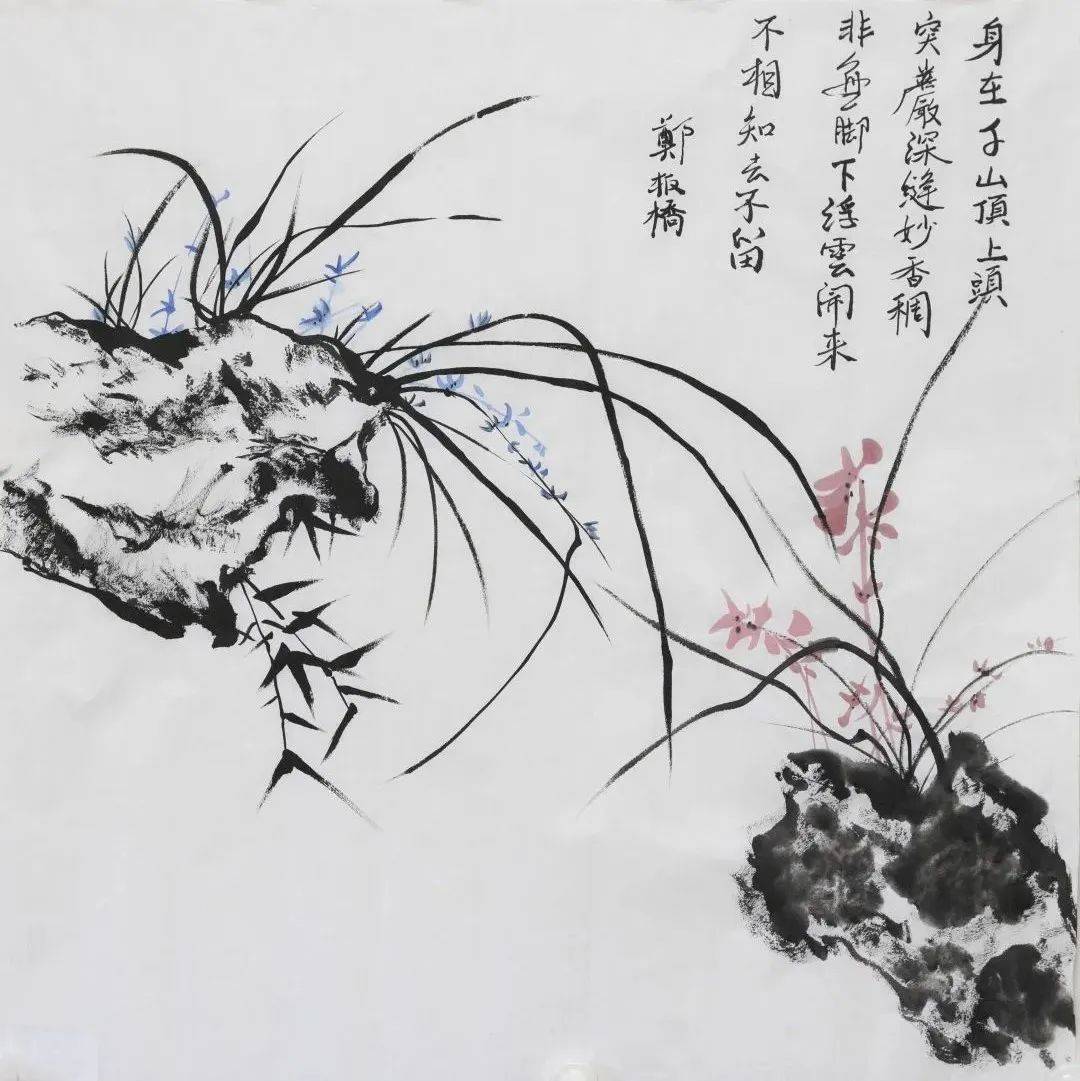 身在千山頂上頭
突巖深縫妙香稠
非無脚下浮雲闹来
不相知去不留
鄭板橋